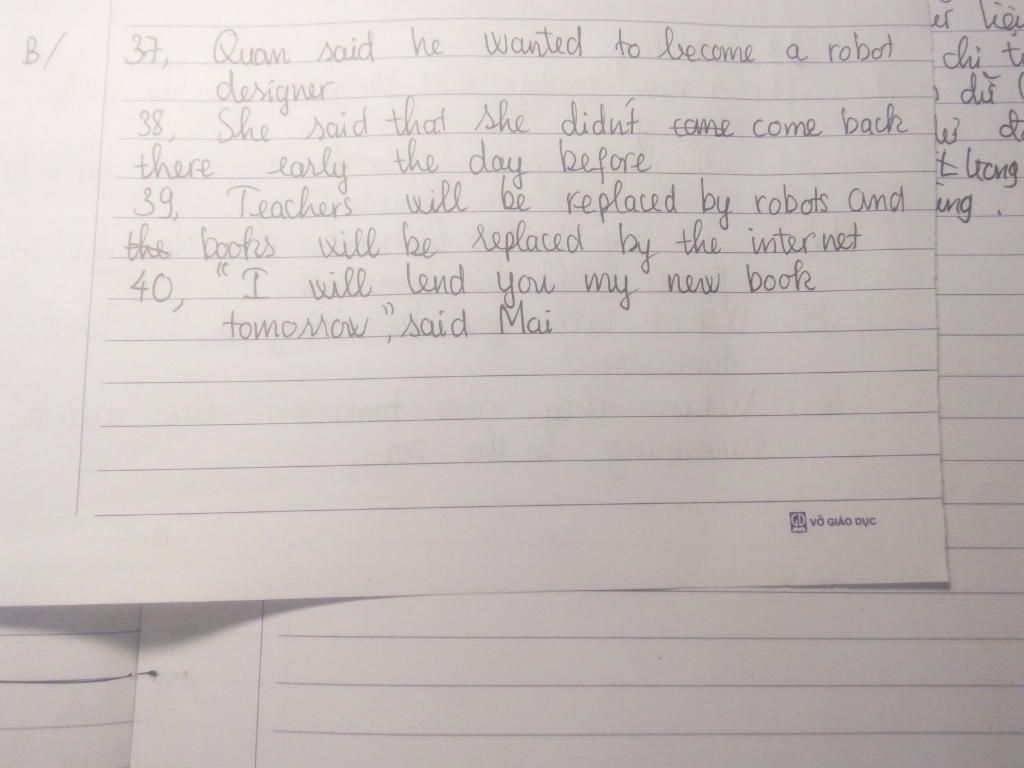 B/ 37, Quan said he wanted to become a robot
designer
38, She said that she didn't come come back
there early the day before
39, Teachers will be replaced by robots and
the books will be replaced by the internet
40, "I will lend you my new book
tomorrow", said Mai
VỞ GIÁO DỤC
chi
dữ